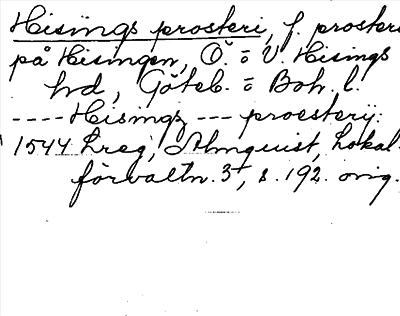 Hisings prosteri, f. prosteri
på Hisingen, Ö. o V. Hisings
hd, Göteb. o Boh. l.
---- Hisingz --- proesterij:
1544 Lreg, Almquist, Lokal-
förvaltn. 3, s. 192. orig.